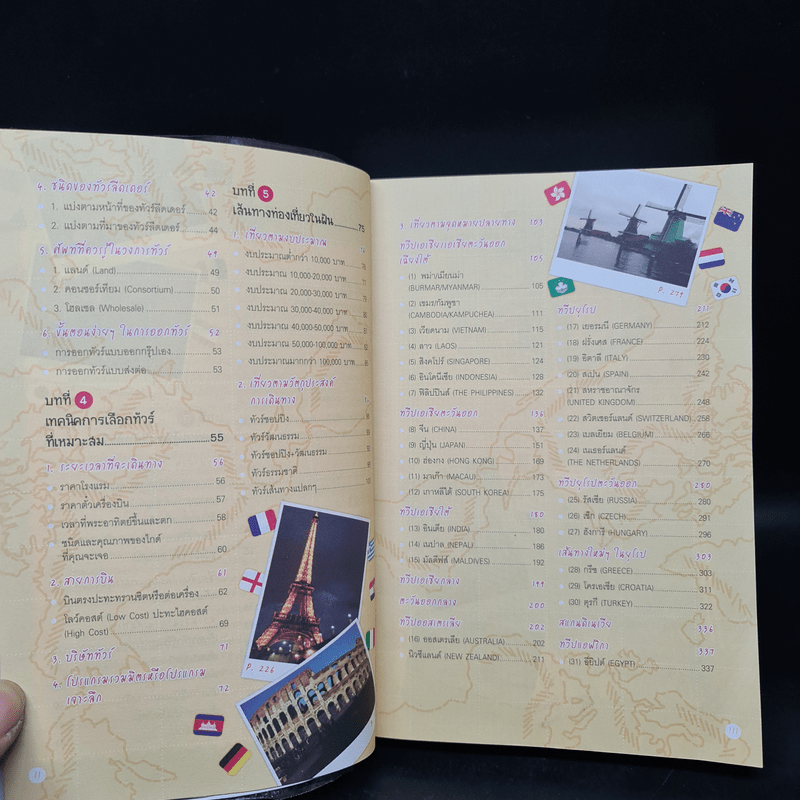 4. ชนิดของทัวร์ลีดเดอร์ 42
1. แบ่งตามหน้าที่ของทัวร์ลีดเดอร์ 42
2. แบ่งตามที่มาของทัวร์ลีดเดอร์ 44
5. ศัพท์ที่ควรรู้ในวงการทัวร์ 49
1. แลนด์ (Land) 49
2. คอนซอร์เทียม (Consortium) 50
3. โฮลเซล (Wholesale) 51
6. ขั้นตอนง่ายๆ ในการออกทัวร์ 52
การออกทัวร์แบบออกกรุ๊ปเอง 53
การออกทัวร์แบบส่งต่อ 53
บทที่ 4
เทคนิคการเลือกทัวร์
ที่เหมาะสม 55
1. ระยะเวลาที่จะเดินทาง 56
ราคาโรงแรม 56
ราคาตั๋วเครื่องบิน 57
เวลาที่พระอาทิตย์ขึ้นและตก 58
ชนิดและคุณภาพของไกด์
ที่คุณจะเจอ 60
2. สายการบิน 61
บินตรงปะทะทรานซิตหรือต่อเครื่อง 62
โลว์คอสต์ (Low Cost) ปะทะไฮคอสต์
(High Cost) 69
3. บริษัททัวร์ 71
4. โปรแกรมรวมมิตรหรือโปรแกรม
เจาะลึก 72
บทที่ 5
เส้นทางท่องเที่ยวในฝัน 75
1. เที่ยวตามงบประมาณ
งบประมาณต่ำกว่า 10,000 บาท
งบประมาณ 10,000-20,000 บาท
งบประมาณ 20,000-30,000 บาท
งบประมาณ 30,000-40,000 บาท
งบประมาณ 40,000-50,000 บาท
งบประมาณ 50,000-100,000 บาท
งบประมาณมากกว่า 100,000 บาท
2. เที่ยวตามวัตถุประสงค์
การเดินทาง
ทัวร์ชอปปิง
ทัวร์วัฒนธรรม
ทัวร์ชอปปิง+วัฒนธรรม
ทัวร์ธรรมชาติ
ทัวร์เส้นทางแปลกๆ
P. 226
II
3. เที่ยวตามจุดหมายปลายทาง 103
ทวีปเอเชีย:เอเชียตะวันออก
เฉียงใต้ 105
(1) พม่า/เมียนม่า
(BURMAR/MYANMAR) 105
(2) เขมร/กัมพูชา
(CAMBODIA/KAMPUCHEA) 111
(3) เวียดนาม (VIETNAM) 115
(4) ลาว (LAOS) 121
(5) สิงคโปร์ (SINGAPORE) 124
(6) อินโดนีเซีย (INDONESIA) 128
(7) ฟิลิปปินส์ (THE PHILIPPINES) 132
ทวีปเอเชียตะวันออก 136
(8) จีน (CHINA) 137
(9) ญี่ปุ่น (JAPAN) 151
(10) ฮ่องกง (HONG KONG) 169
(11) มาเก๊า (MACAU) 173
(12) เกาหลีใต้ (SOUTH KOREA) 175
ทวีปเอเชียใต้ 180
(13) อินเดีย (INDIA) 180
(14) เนปาล (NEPAL) 186
(15) มัลดีฟส์ (MALDIVES) 192
ทวีปเอเชียกลาง 199
ตะวันออกกลาง 200
ทวีปออสเตรเลีย 202
(16) ออสเตรเลีย (AUSTRALIA) 202
นิวซีแลนด์ (NEW ZEALAND) 211
P. 271
ทวีปยุโรป 211
(17) เยอรมนี (GERMANY) 212
(18) ฝรั่งเศส (FRANCE) 224
(19) อิตาลี (ITALY) 230
(20) สเปน (SPAIN) 242
(21) สหราชอาณาจักร
(UNITED KINGDOM) 248
(22) สวิตเซอร์แลนด์ (SWITZERLAND) 258
(23) เบลเยียม (BELGIUM) 266
(24) เนเธอร์แลนด์
(THE NETHERLANDS) 270
ทวีปยุโรปตะวันออก 280
(25) รัสเซีย (RUSSIA) 280
(26) เช็ก (CZECH) 291
(27) ฮังการี (HUNGARY) 296
เส้นทางใหม่ๆ ในยุโรป 303
(28) กรีซ (GREECE) 303
(29) โครเอเชีย (CROATIA) 311
(30) ตุรกี (TURKEY) 322
สแกนดิเนเวีย 336
ทวีปแอฟริกา 337
(31) อียิปต์ (EGYPT) 337
III